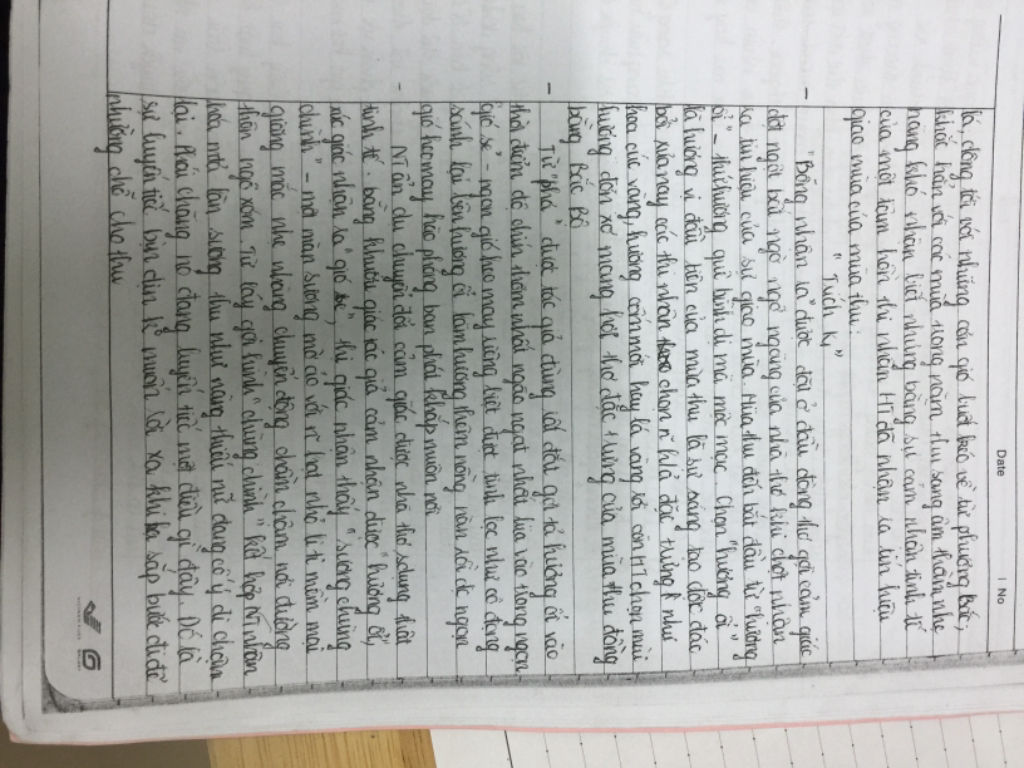 Date
No
lá, đông tới, với những cán gió lướt heo về từ phương Bắc,
khác hẳn với các mùa trong năm thu sang âm thầm nhẹ
nhàng khó nhận biết nhưng bằng sự cảm nhận tinh tế
của một tâm hồn thi nhân HT đã nhận ra tín hiệu
giao mùa của mùa thu.
" Trích kt "
- "Bỗng nhận ra" được đặt ở đầu dòng thơ gợi cảm giác
đột ngột bất ngờ ngỡ ngàng của nhà thơ khi chợt nhận
ra tín hiệu của sự giao mùa. Mùa thu đến bắt đầu từ "hương
ổi" - thứ hương quê bình dị mà mộc mạc. Chọn "hương ổi"
là hương vị đầu tiên của mùa thu là sự sáng tạo độc đáo
bởi xưa nay các thi nhân chọn n khá đặc trưng như
hoa cúc vàng, hương cốm mới hay lá vàng rơi còn HT chọn mùi
hương đơn sơ mang hơi thơ đặc trưng của mùa thu đồng
bằng Bắc Bộ
- Từ "phả" được tác giả dùng rất đắt gợi tả hương ổi vào
thời điểm đó chín thơm nhất ngào ngạt nhất lùa vào trong ngọn
gió se - ngọn gió heo may riêng biệt được tinh lọc như cô đọng
sánh lại làn hương ổi làm hương thêm nồng nàn rồi đc ngọn
gió heo may hào phóng ban phát khắp muôn nơi
- NT ẩn dụ chuyển đổi cảm giác được nhà thơ sdụng thật
tinh tế. bằng khứu giác tác giả cảm nhận được "hương ổi",
xúc giác nhận ra "gió se", thị giác nhận thấy "sương chùng
chình" - nơi màn sương mờ ảo với n hạt nhỏ li ti mềm mại
giăng mắc nhẹ nhàng chuyển động chầm chậm nơi đường
thôn ngõ xóm. Từ láy gợi hình "chùng chình" kết hợp NT nhân
hóa nơi làn sương thu như nàng thiếu nữ đang cố ý đi chậm
lại. Phải chăng nó đang luyến tiếc một điều gì đấy. Đó là
sự luyến tiếc bịn rịn k muốn rời xa khi hạ sắp bước đi để
nhường chỗ cho thu